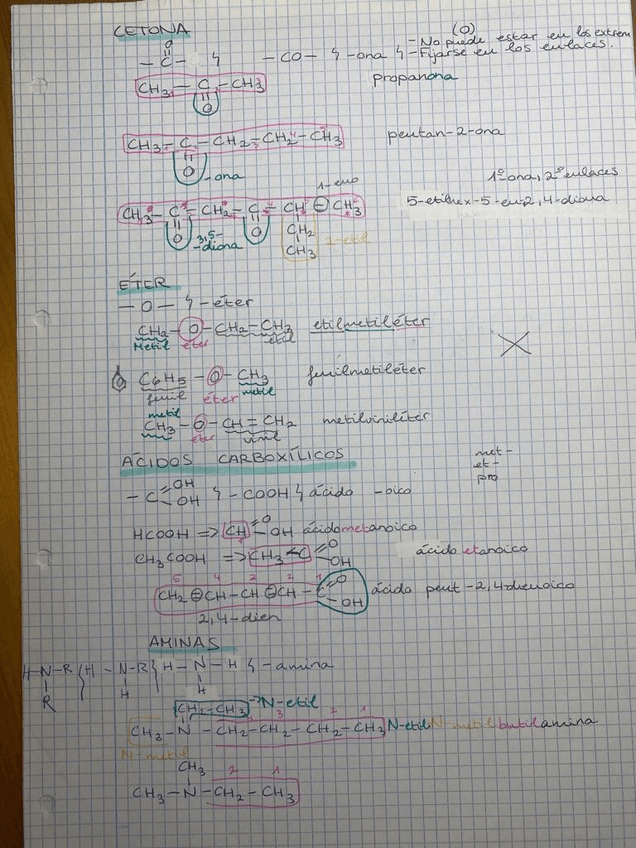 CETONA
(O)
O
- C - ϟ -CO- ϟ -ona ϟ - No puede estar en los extrem
- Fijarse en los enlaces.
CH3 - C - CH3 propanona
O
CH3 - C - CH2 - CH2 - CH3 pentan-2-ona
O -ona
1-eno 1º ona, 2º enlaces
CH3 - C - CH2 - C - CH = CH3 5-etilhex-5-en-2,4-diona
O 3,5- O CH2 2-etil
diona CH3
ÉTER
- O - ϟ -éter
CH3 - O - CH2 - CH3 etilmetiléter
Metil éter etil
C6H5 - O - CH3 fenilmetiléter
fenil éter metil
metil
CH3 - O - CH = CH2 metilviniléter
éter vinil
ÁCIDOS CARBOXÍLICOS
met-
et-
pro
- C OH OH ϟ - COOH ϟ ácido -oico
HCOOH => CH O - OH ácido metanoico
CH3COOH => CH3 - C O OH ácido etanoico
5 4 3 2 1
CH2 = CH - CH = CH - C O - OH ácido pent-2,4-dienoico
2,4-dien
AMINAS
H-N-R ϟ H - N-R ϟ H - N - H ϟ -amina
R H H
CH2-CH3 → N-etil
3 2 1
CH3 - N - CH2 - CH2 - CH2 - CH3 N-etil N-metil butilamina
N-metil
CH3 2 1
CH3 - N - CH2 - CH3